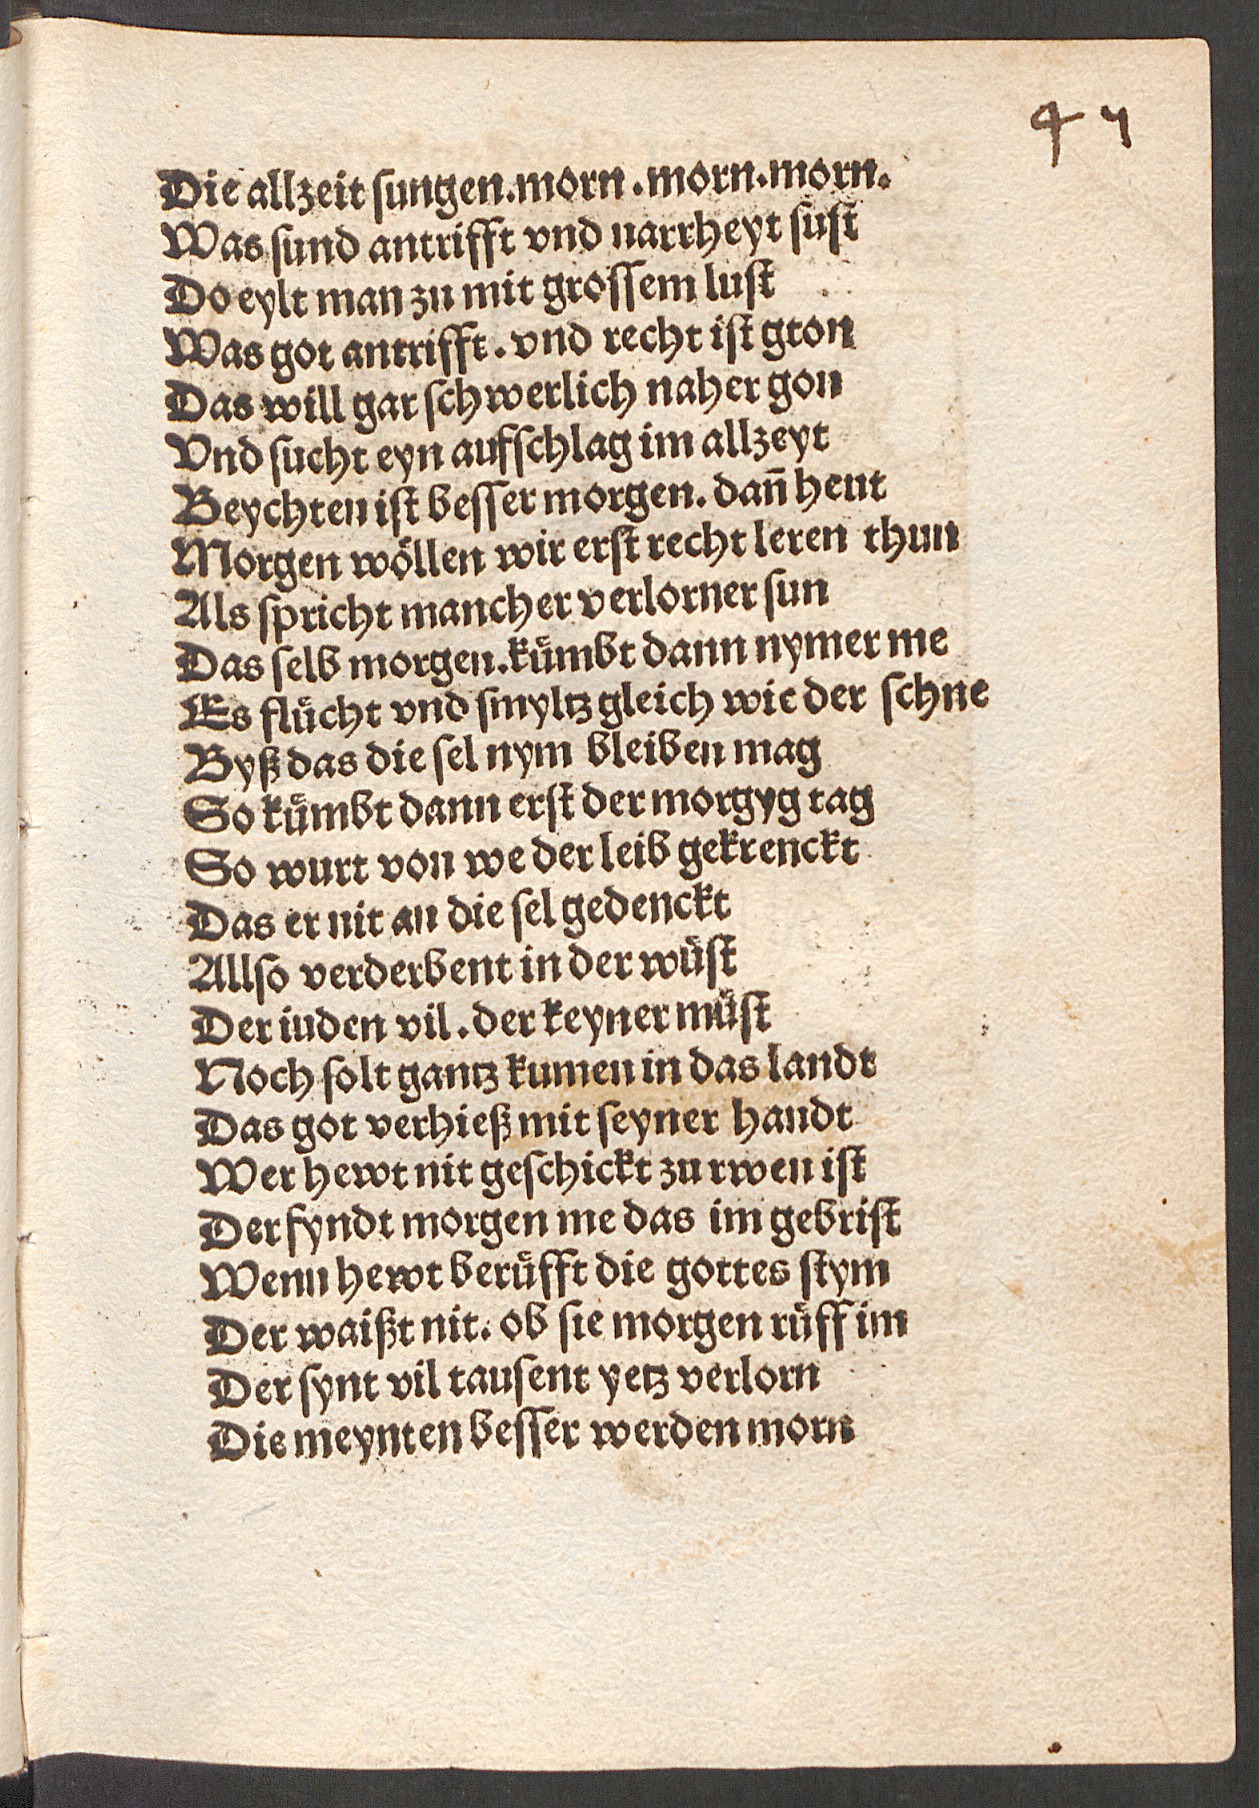 Die allzeit sungen.morn.morn.morn.
Was sund antrifft vnd narrheyt sust
Do eylt man zu mit grossem lust
Was got antrifft. vnd recht ist gton
Das will gar schwerlich naher gon
Vnd sucht eyn aufschlag im allzeyt
Beychten ist besser morgen. dan̄ heut
Morgen woͤllen wir erst recht leren thun
Als spricht mancher verlorner sun
Das selb morgen.kuͤmbt dann nymer me
Es fluͤcht vnd smyltz gleich wie der schne
Byß das die sel nym bleiben mag
So kuͤmbt dann erst der morgyg tag
So wurt von we der leib gekrenckt
Das er nit an die sel gedenckt
Allso verderbent in der wuͤst
Der iuden vil. der keyner muͤst
Noch solt gantz kumen in das landt
Das got verhieß mit seyner handt
Wer hewt nit geschickt zu rwen ist
Der fyndt morgen me das im gebrist
Wenn hewt beruͤfft die gottes stym
Der waißt nit. ob sie morgen ruͤff im
Der synt vil tausent yetz verlorn
Die meynten besser werden morn